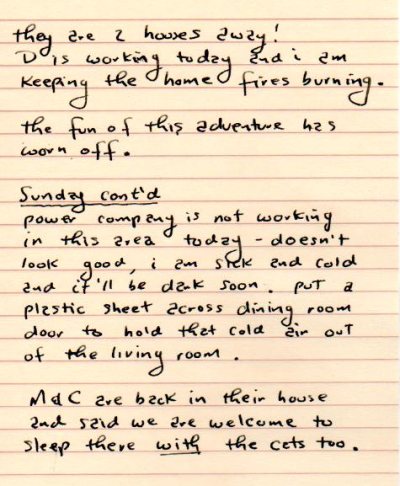 they are 2 houses away!
D is working today and i am
keeping the home fires burning.
the fun of this adventure has
worn off.
Sunday cont'd
power company is not working
in this area today - doesn't
look good, i am sick and cold
and it'll be dark soon. put a
plastic sheet across dining room
door to hold that cold air out
of the living room.
M & C are back in their house
and said we are welcome to
sleep there with the cats too.